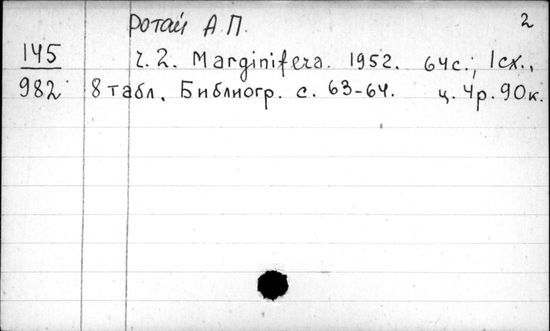 Ротай А.П. 2
145 ч.2. Marginifera. 1952. 64с.; 1сх.,
982 8 табл. Библиогр. с. 63-64. ц. 4р. 90к.